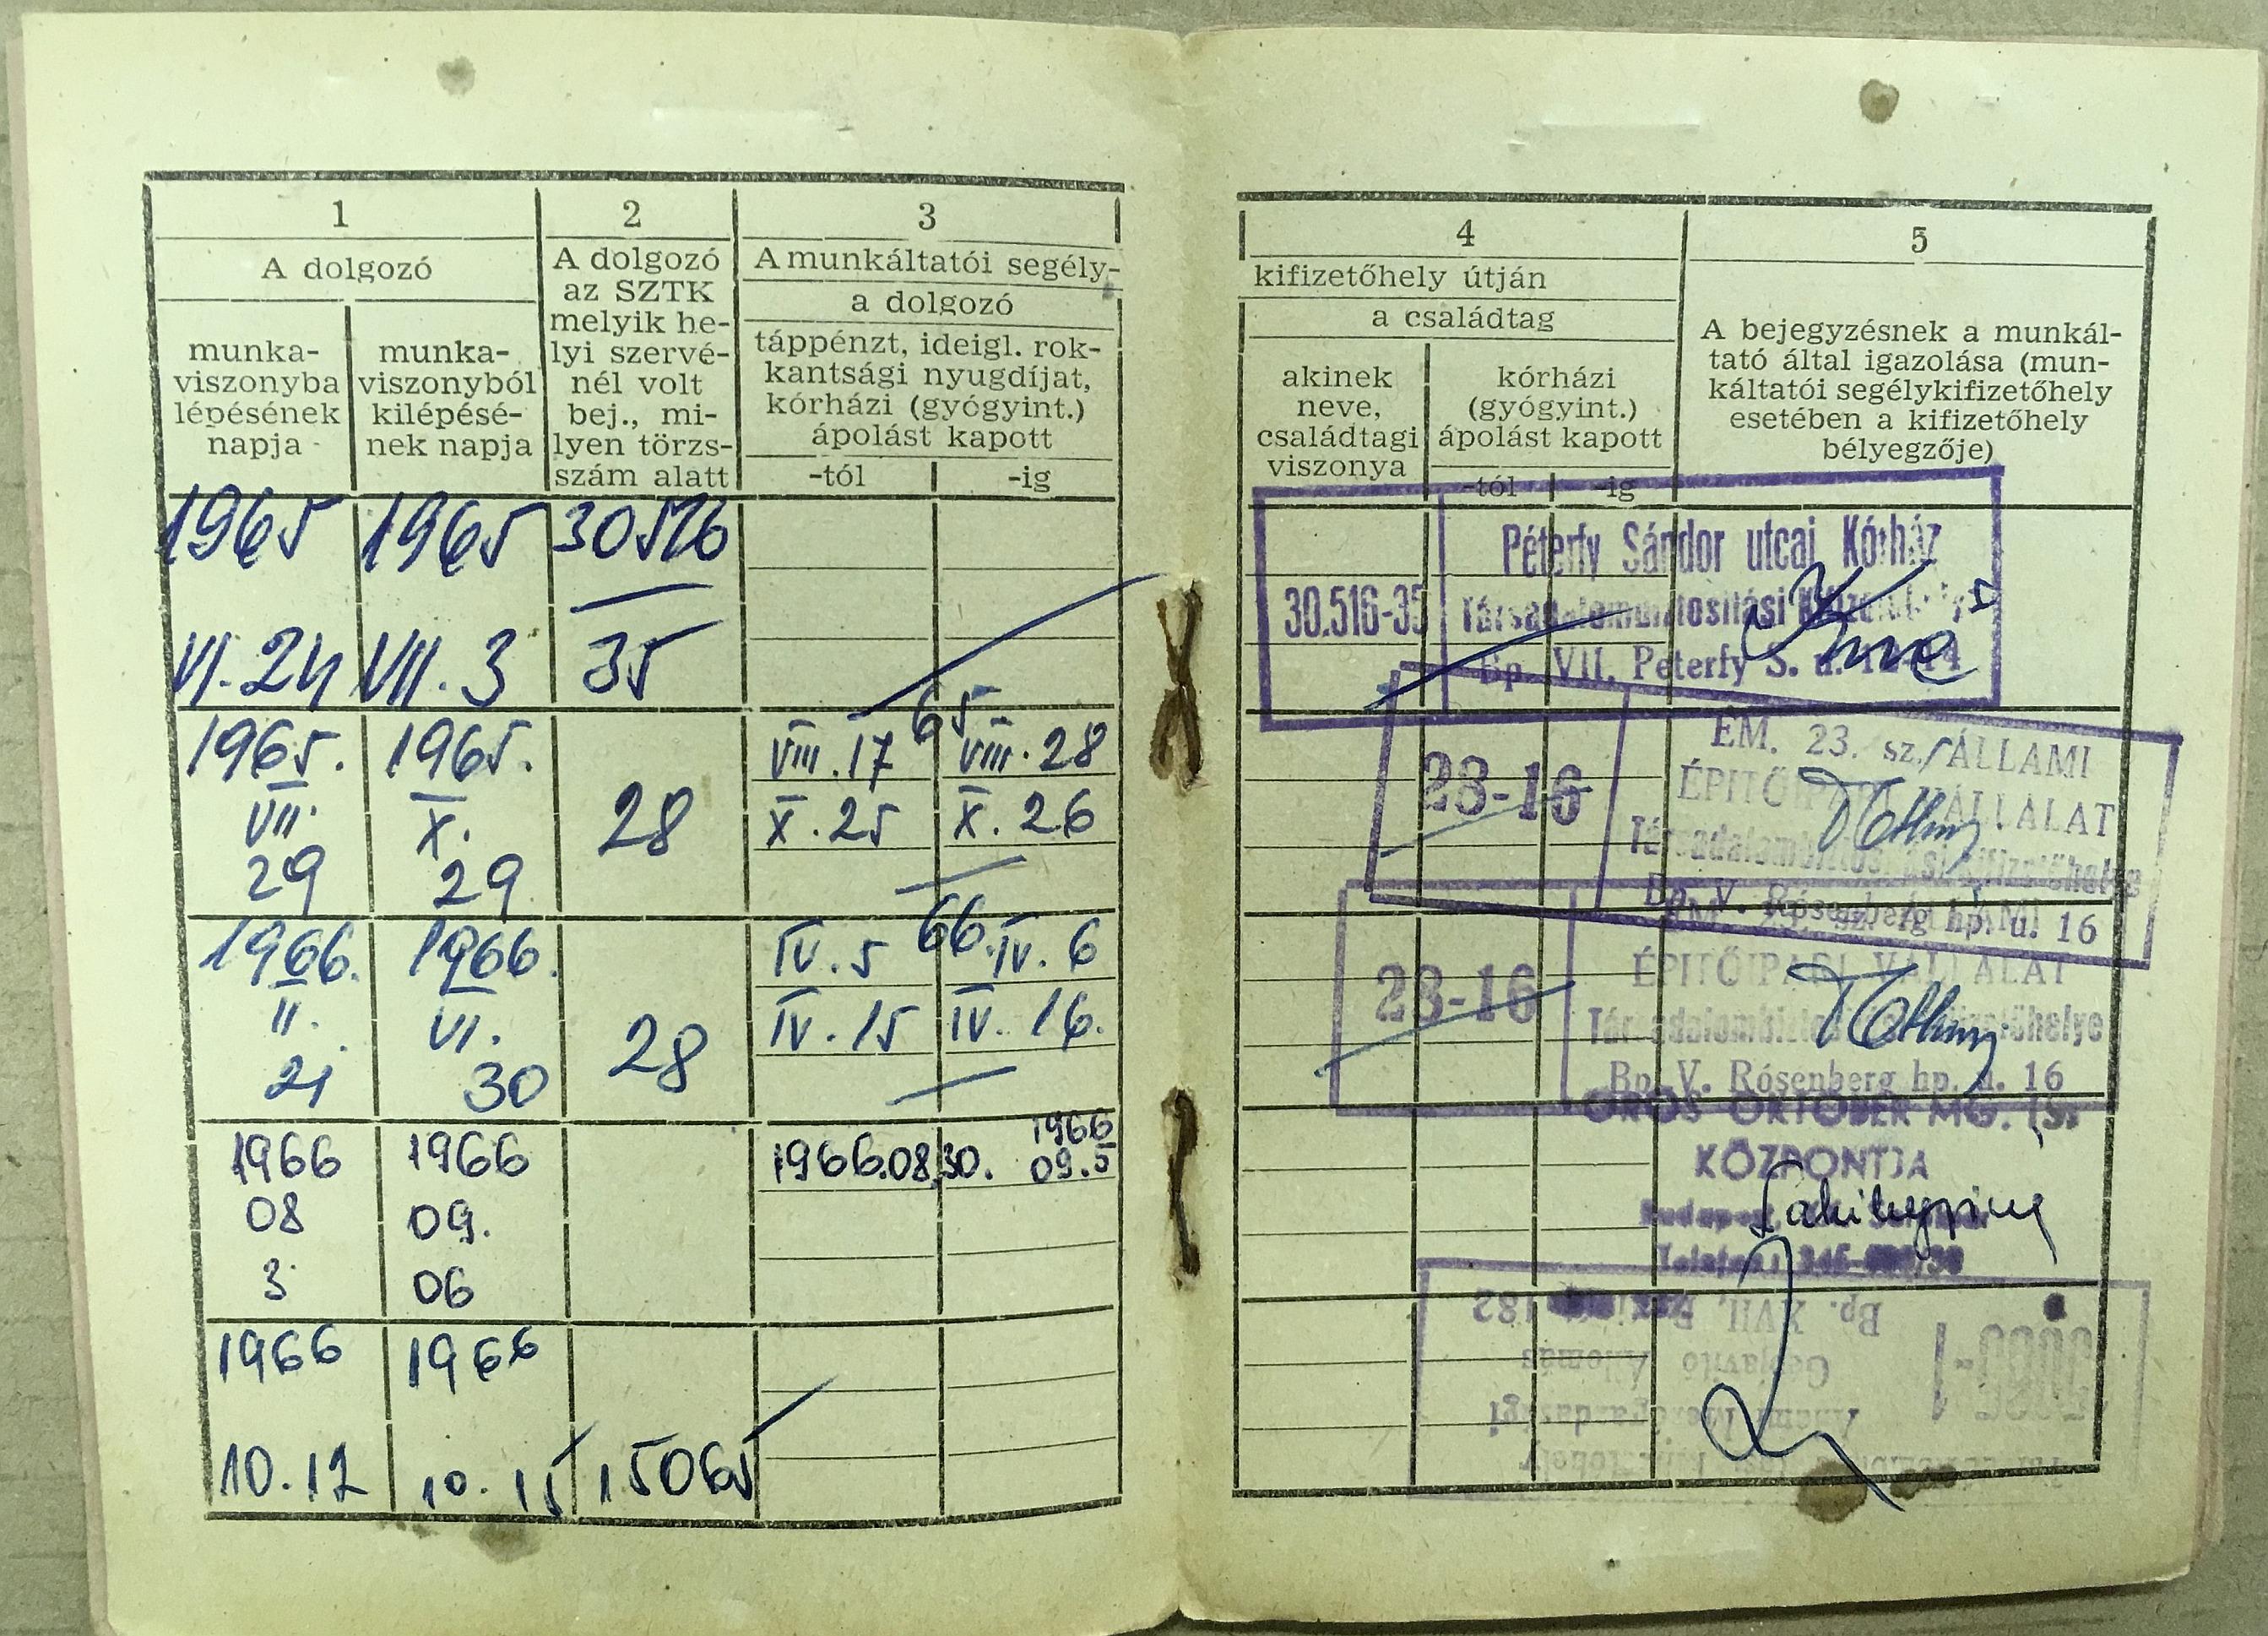 1
A dolgozó
munka-
viszonyba
lépésének
napja
munka-
viszonyból
kilépésé-
nek napja
2
A dolgozó
az SZTK
melyik he-
lyi szervé-
nél volt
bej., mi-
lyen törzs-
szám alatt
3
A munkáltatói segély-
a dolgozó
táppénzt, ideigl. rok-
kantsági nyugdíjat,
kórházi (gyógyint.)
ápolást kapott
-tól
-ig
4
kifizetőhely útján
a családtag
akinek
neve,
családtagi
viszonya
kórházi
(gyógyint.)
ápolást kapott
-tól
-ig
5
A bejegyzésnek a munkál-
tató által igazolása (mun-
káltatói segélykifizetőhely
esetében a kifizetőhely
bélyegzője)
1965
VI. 24
1965
VII. 3
30516
35
30.516-35
Péterfy Sándor utcai Kórház
Társadalombiztosítási
Bp. VII. Péterfy S. u.
1965.
VII.
29
1965.
X.
29
28
65
VIII. 17
VIII. 28
X. 25
X. 26
23-16
ÉM. 23. sz. ÁLLAMI
ÉPITŐIPARI VÁLLALAT
Társadalombiztosítási kifizetőhelye
Bp. V. Rósenberg hp. u. 16
1966.
II.
21
1966.
VI.
30
28
66.
IV. 5
IV. 6
IV. 15
IV. 16.
23-16
ÉPITŐIPARI VÁLLALAT
Társadalombiztosítási kifizetőhelye
Bp. V. Rósenberg hp. u. 16
1966
08
3
1966
09.
06
1966.08.30.
1966
09.5
OKTÓBER MG.
KÖZPONTJA
Budapest
Telefon:
1966
10.12
1966
10.15
15065
Bp. XVII. 182
Gépjavító Állomás
Állami Mezőgazdasági